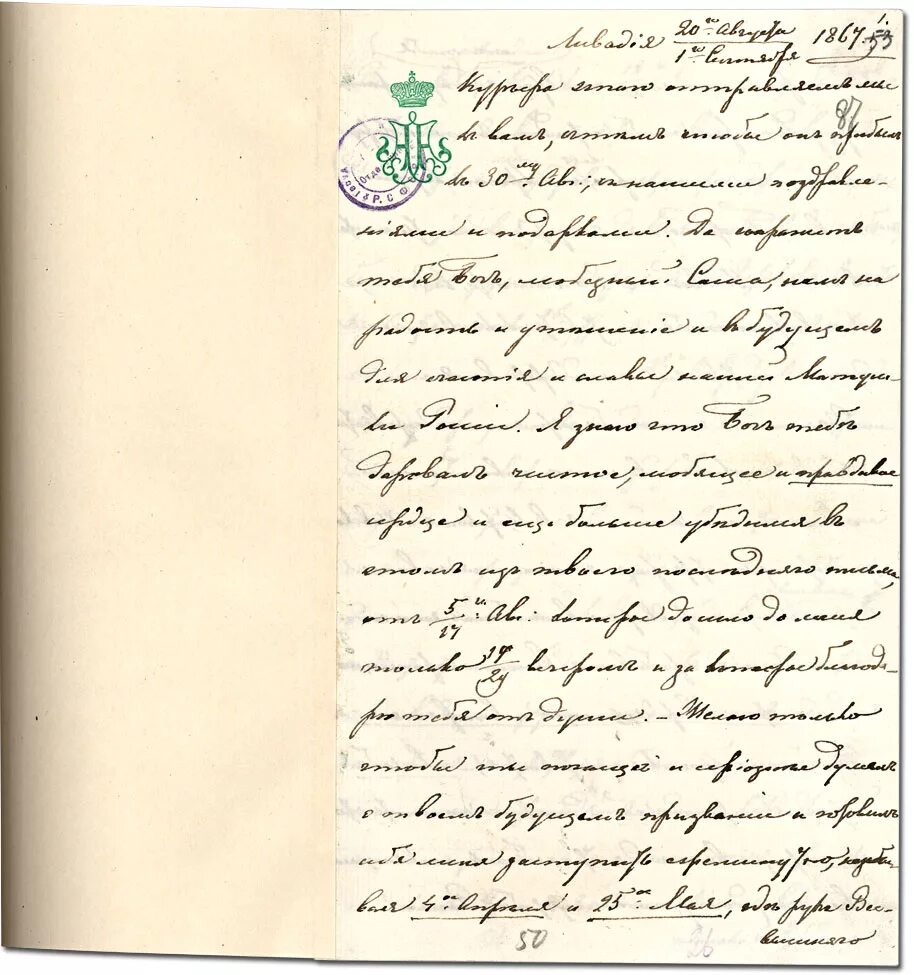 1.
Ливадія 20го Августа 1867. 53
1го Сентября
Курьера этого отправляемъ мы
87
къ вамъ, съ тѣмъ чтобы онъ прибылъ
къ 30му Авг: съ нашими поздравле-
ніями и подарками. Да сохранитъ
тебя Богъ, любезный Саша, намъ на
радость и утѣшеніе и въ будущемъ
для счастія и славы нашей Матуш-
ки Россіи. Я знаю что Богъ тебѣ
даровалъ чистое, любящее и правдивое
сердце и еще больше убѣдился въ
этомъ изъ твоего послѣдняго письма,
отъ 5/17го Авг: которое дошло до меня
только 17/29 вечеромъ и за которое благода-
рю тебя отъ души. – Желаю только
чтобы ты почаще и серіознѣе думалъ
о твоемъ будущемъ призваніи и готовилъ
себя меня заступить ежеминутно, не забы-
вая 4го Апрѣля и 25го Мая, гдѣ рука Все-
вышняго
50
Р. С. Ф.